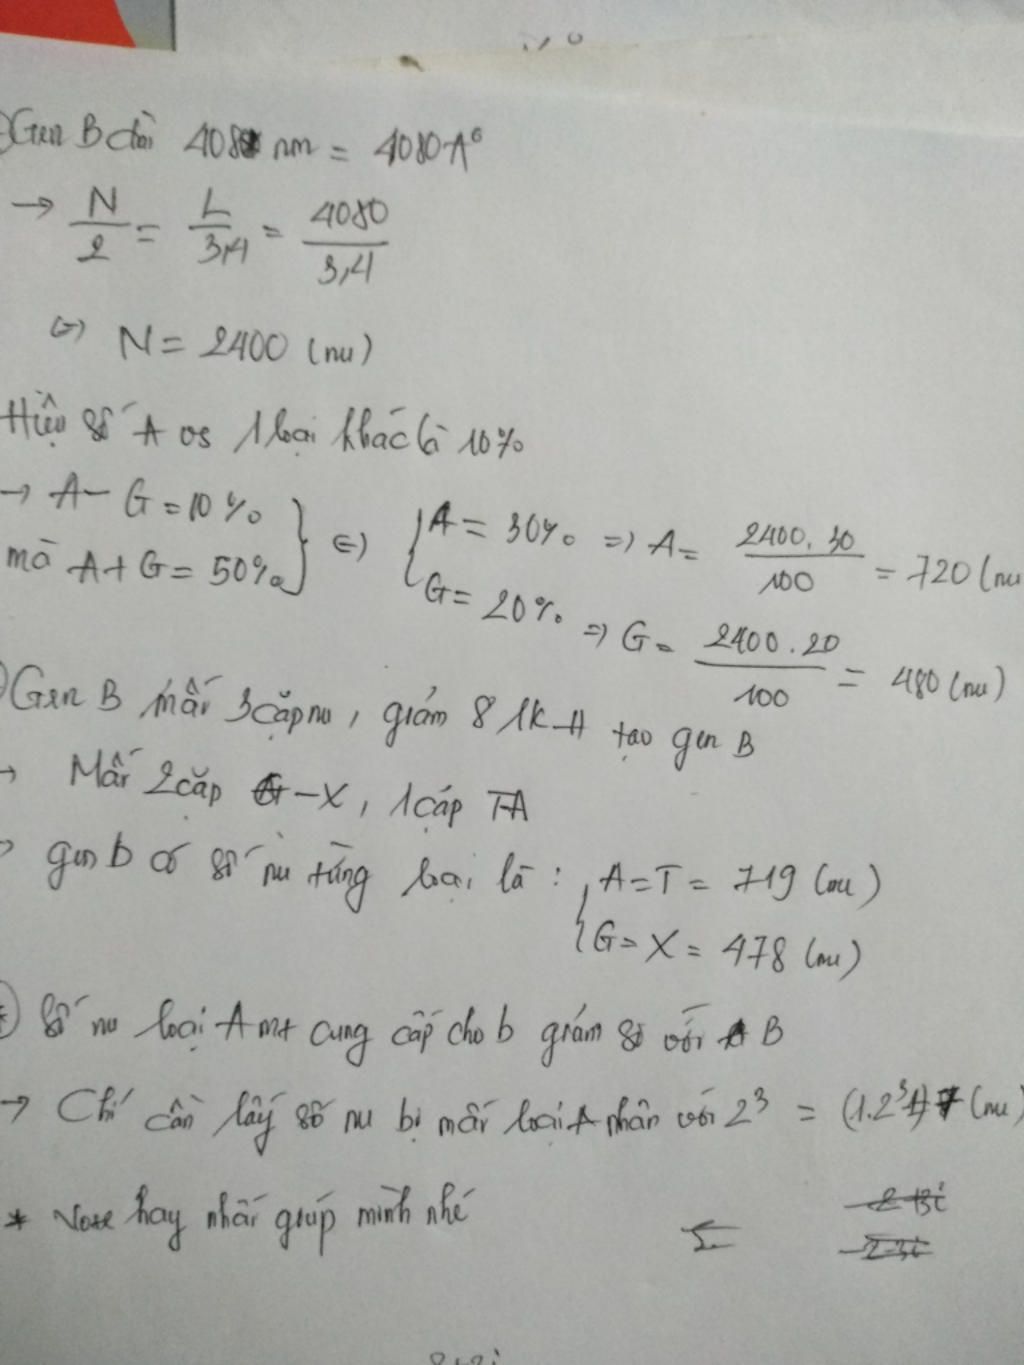 Gen B dài 408 nm = 4080 A⁰
→ N/2 = L/3,4 = 4080/3,4
(=) N = 2400 (nu)
Hiệu số A vs 1 loại khác là 10%
→ A - G = 10%
mà A + G = 50% } (=) { A = 30% => A = 2400.30/100 = 720 (nu
G = 20% => G = 2400.20/100 = 480 (nu)
Gen B mất 3 cặp nu, giảm 8 lk H tạo gen B
→ Mất 2 cặp G-X, 1 cặp T-A
gen b có số nu từng loại là: { A = T = 719 (nu)
G = X = 478 (nu)
Số nu loại A mt cung cấp cho b giảm so với B
→ Chỉ cần lấy số nu bị mất loại A nhân với 2³ = (1.2³ (nu)
* Vote hay nhất giúp mình nhé